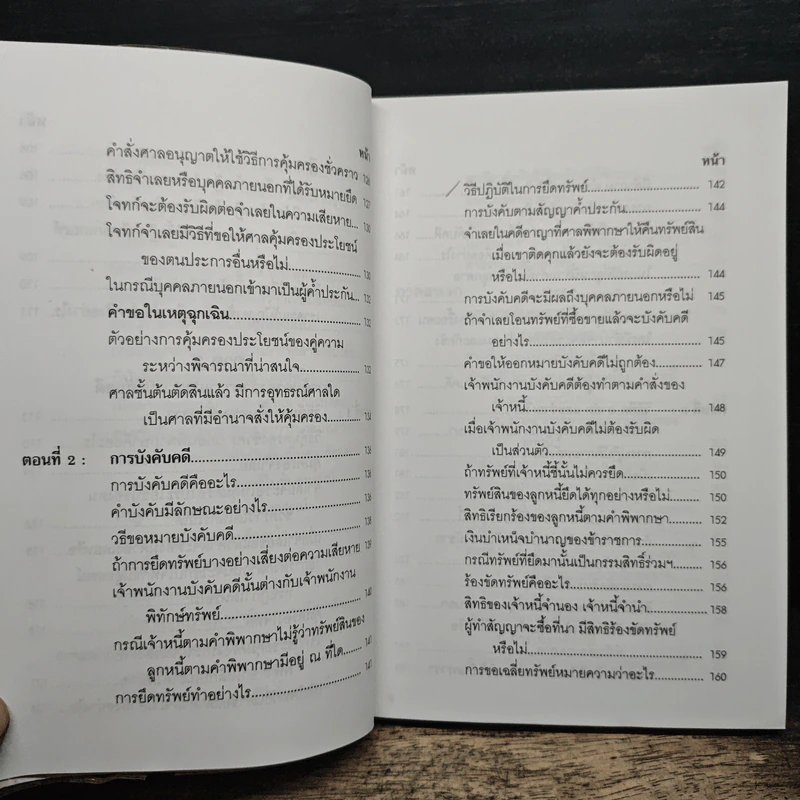 หน้า
คำสั่งศาลอนุญาตให้ใช้วิธีการคุ้มครองชั่วคราว 126
สิทธิจำเลยหรือบุคคลภายนอกที่ได้รับหมายยึด 127
โจทก์จะต้องรับผิดต่อจำเลยในความเสียหาย... 130
โจทก์จำเลยมีวิธีที่ขอให้ศาลคุ้มครองประโยชน์
ของตนประการอื่นหรือไม่... 130
ในกรณีบุคคลภายนอกเข้ามาเป็นผู้ค้ำประกัน... 132
คำขอในเหตุฉุกเฉิน... 132
ตัวอย่างการคุ้มครองประโยชน์ของคู่ความ
ระหว่างพิจารณาที่น่าสนใจ... 133
ศาลชั้นต้นตัดสินแล้ว มีการอุทธรณ์ศาลใด
เป็นศาลที่มีอำนาจสั่งให้คุ้มครอง... 134
ตอนที่ 2 : การบังคับคดี... 136
การบังคับคดีคืออะไร... 136
คำบังคับมีลักษณะอย่างไร... 136
วิธีขอหมายบังคับคดี... 138
ถ้าการยึดทรัพย์บางอย่างเสี่ยงต่อความเสียหาย 139
เจ้าพนักงานบังคับคดีนั้นต่างกับเจ้าพนักงาน
พิทักษ์ทรัพย์... 140
กรณีเจ้าหนี้ตามคำพิพากษาไม่รู้ว่าทรัพย์สินของ
ลูกหนี้ตามคำพิพากษามีอยู่ ณ ที่ใด... 141
การยึดทรัพย์ทำอย่างไร... 141
หน้า
วิธีปฏิบัติในการยึดทรัพย์... 142
การบังคับตามสัญญาค้ำประกัน... 144
จำเลยในคดีอาญาที่ศาลพิพากษาให้คืนทรัพย์สิน
เมื่อเขาติดคุกแล้วยังจะต้องรับผิดอยู่
หรือไม่... 144
การบังคับคดีจะมีผลถึงบุคคลภายนอกหรือไม่ 145
ถ้าจำเลยโอนทรัพย์ที่ซื้อขายแล้วจะบังคับคดี
อย่างไร... 145
คำขอให้ออกหมายบังคับคดีไม่ถูกต้อง... 147
เจ้าพนักงานบังคับคดีต้องทำตามคำสั่งของ
เจ้าหนี้... 148
เมื่อเจ้าพนักงานบังคับคดีไม่ต้องรับผิด
เป็นส่วนตัว... 149
ถ้าทรัพย์ที่เจ้าหนี้ชี้นั้นไม่ควรยึด... 150
ทรัพย์สินของลูกหนี้ยึดได้ทุกอย่างหรือไม่... 150
สิทธิเรียกร้องของลูกหนี้ตามคำพิพากษา... 152
เงินบำเหน็จบำนาญของข้าราชการ... 155
กรณีทรัพย์ที่ยึดมานั้นเป็นกรรมสิทธิ์ร่วมฯ... 156
ร้องขัดทรัพย์คืออะไร... 156
สิทธิของเจ้าหนี้จำนอง เจ้าหนี้จำนำ... 158
ผู้ทำสัญญาจะซื้อที่นา มีสิทธิร้องขัดทรัพย์
หรือไม่... 159
การขอเฉลี่ยทรัพย์หมายความว่าอะไร... 160